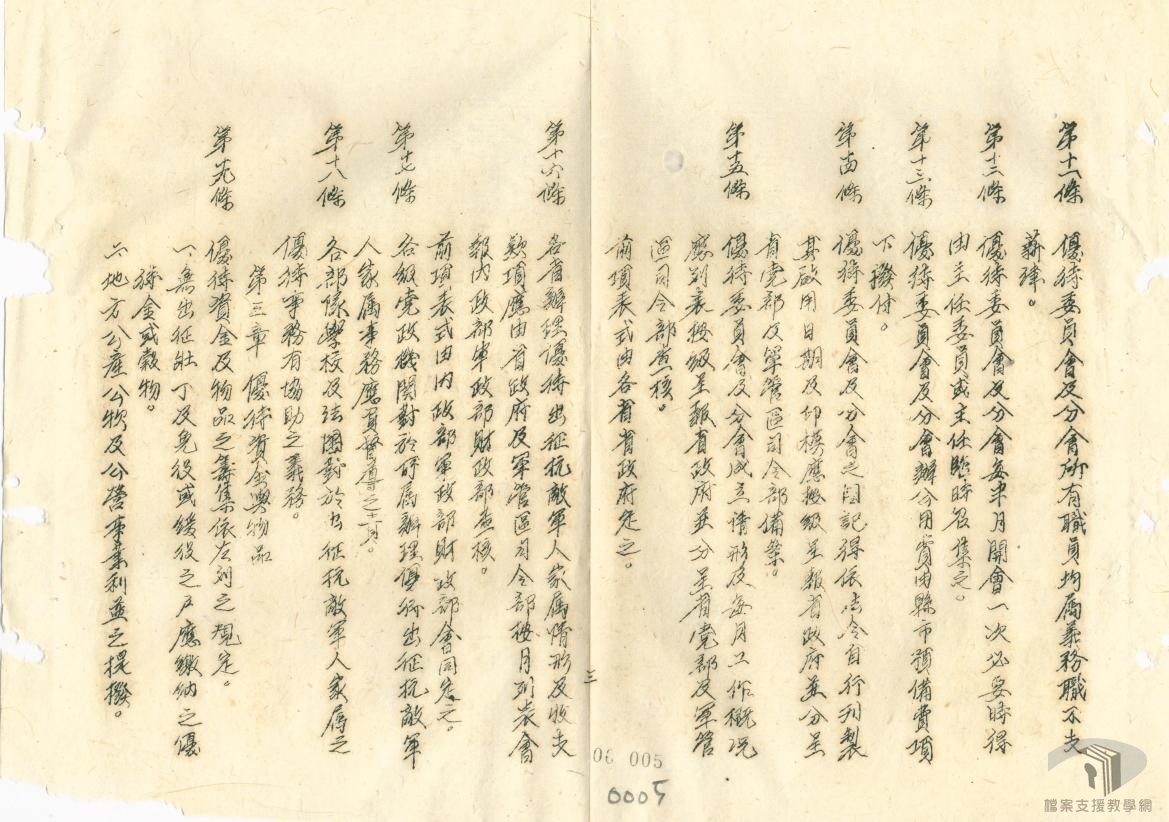 第十一條 優待委員會及分會所有職員均屬義務職不支
薪津。
第十二條 優待委員會及分會每半月開會一次必要時得
由主任委員或主任臨時召集之。
第十三條 優待委員會及分會辦公用費由縣市預備費項
下撥付。
第十四條 優待委員會及分會之圖記得依法令自行刊製
其啟用日期及印模應按級呈報省政府並分呈
省黨部及軍管區司令部備案。
第十五條 優待委員會及分會成立情形及每月工作概況
應列表按級呈報省政府並分呈省黨部及軍管
區司令部查核。
前項表式由各省省政府定之。
第十六條 各省辦理優待出征抗敵軍人家屬情形及收支
款項應由省政府及軍管區司令部按月列表會
報內政部軍政部財政部查核。
前項表式由內政部軍政部財政部會同定之。
第十七條 各級黨政機關對於所屬辦理優待出征抗敵軍
人家屬事務應負督導之責。
第十八條 各部隊學校及法團對於出征抗敵軍人家屬之
優待事務有協助之義務。
第三章 優待資金與物品
第十九條 優待資金及物品之籌集依左列之規定。
一、無出征壯丁及免役或緩役之戶應繳納之優
待金或穀物。
二、地方公產公款及公營事業利益之提撥。
三
06 005
0005
檔案支援教學網